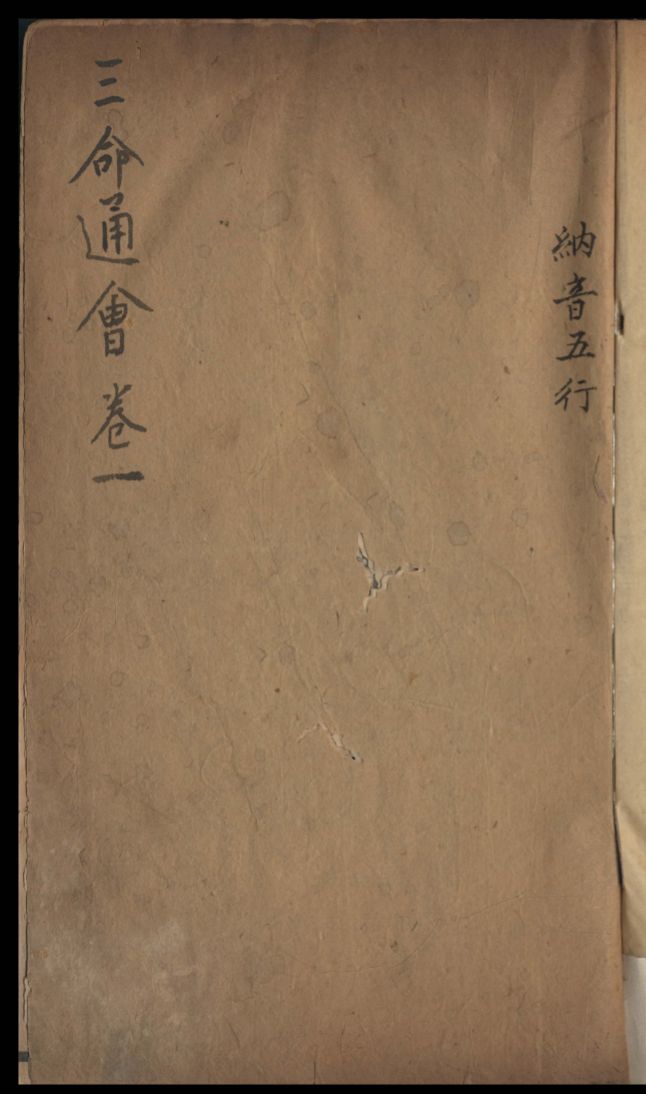 納音五行
三命通會卷一